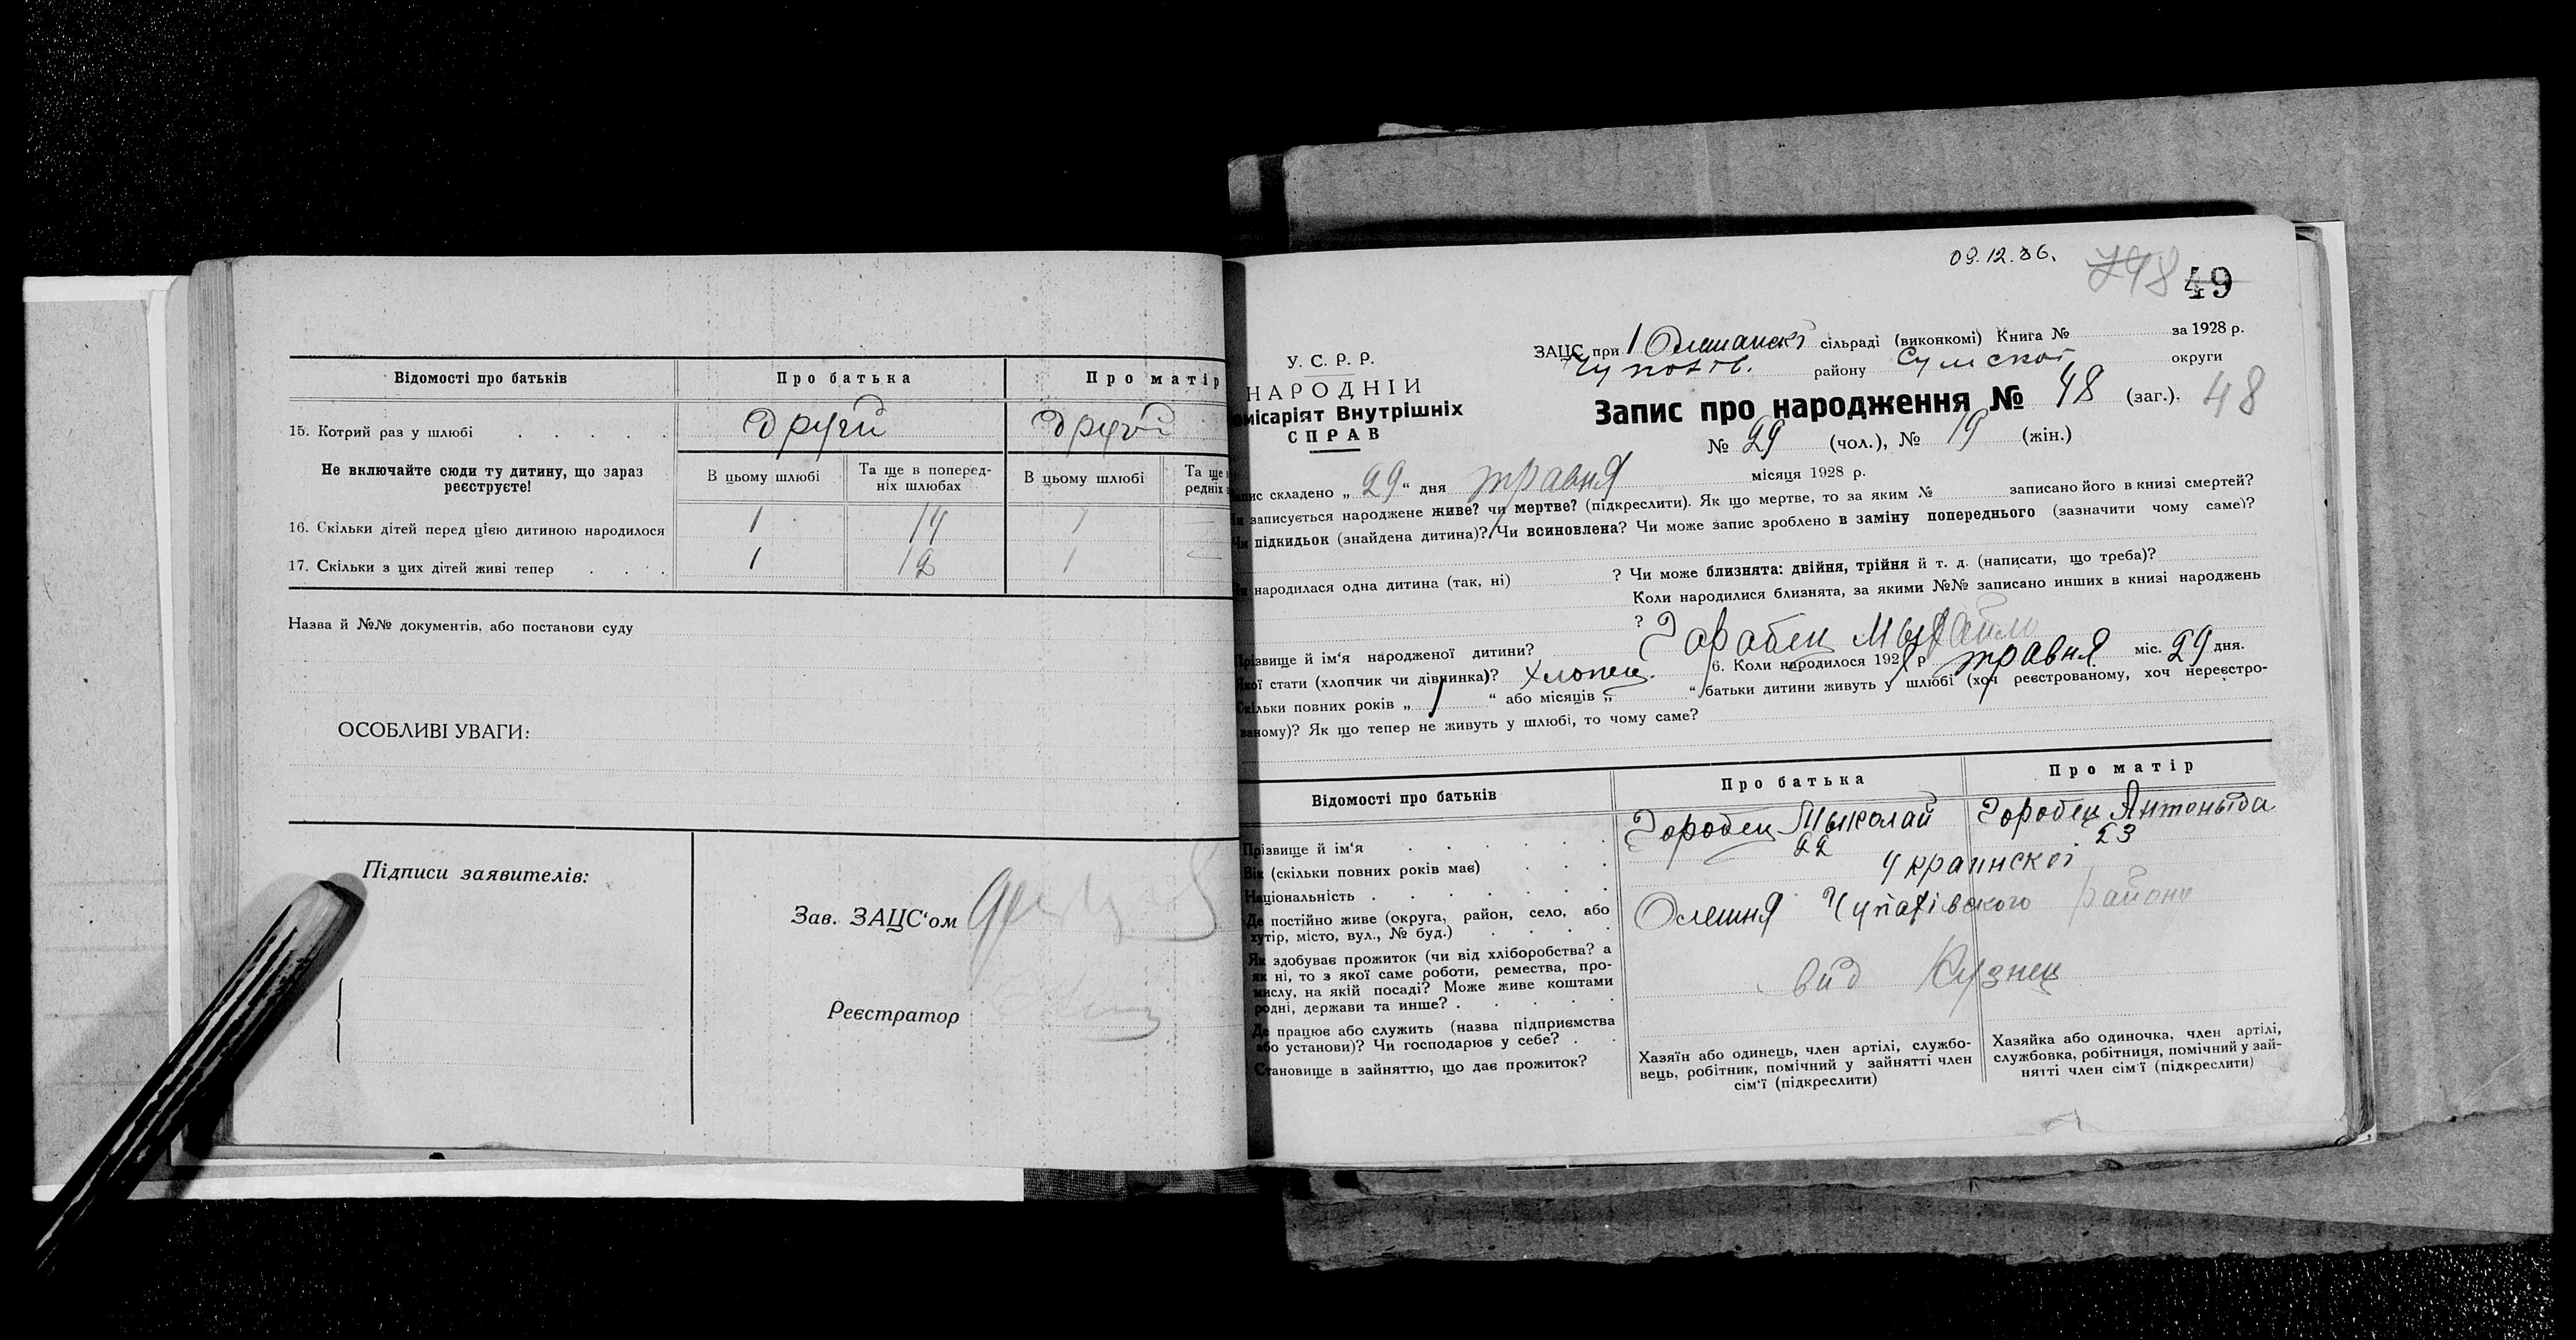 Відомості про батьків
Про батька
Про матір
15. Котрий раз у шлюбі
други
друга
Не включайте сюди ту дитину, що зараз
реєструєте!
В цьому шлюбі
Та ще в поперед-
ніх шлюбах
В цьому шлюбі
Та ще
редніх
16. Скільки дітей перед цією дитиною народилося
1
14
1
17. Скільки з цих дітей живі тепер
1
12
1
Назва й №№ документів, або постанови суду
ОСОБЛИВІ УВАГИ:
Підписи заявителів:
Зав. ЗАЦС'ом
Реєстратор
09.12.36.
748
49
У. С. Р. Р.
НАРОДНІЙ
омісаріят Внутрішніх
СПРАВ
ЗАЦС при 1 Олешанскі сільраді (виконкомі) Книга № за 1928 р.
Чупахів. району Сумскоі округи
Запис про народження № 48 (заг.). 48
№ 29 (чол.), № 19 (жін.)
пис складено „ 29 “ дня травня місяця 1928 р.
записується народжене живе? чи мертве? (підкреслити). Як що мертве, то за яким № записано його в книзі смертей?
Чи підкидьок (знайдена дитина)? Чи всиновлена? Чи може запис зроблено в заміну попереднього (зазначити чому саме)?
народилася одна дитина (так, ні) ? Чи може близнята: двійня, трійня й т. д. (написати, що треба)?
Коли народилися близнята, за якими №№ записано инших в книзі народжень
?
Прізвище й ім'я народженої дитини? Горобец Мыхайло
кої стати (хлопчик чи дівчинка)? Хлопец. 6. Коли народилося 1928 р травня міс. 29 дня.
кільки повних років „ “ або місяців „ “ батьки дитини живуть у шлюбі (хоч реєстрованому, хоч нереєстро-
ваному)? Як що тепер не живуть у шлюбі, то чому саме?
Відомості про батьків
Про батька
Про матір
Прізвище й ім'я
Горобец Мыколай
Горобец Антоныда
Вік (скільки повних років має)
22
23
Національність
Украинскоі
Де постійно живе (округа, район, село, або
хутір, місто, вул., № буд.)
Олешня Чупахівского району
Як здобуває прожиток (чи від хліборобства? а
як ні, то з якої саме роботи, ремества, про-
мислу, на якій посаді? Може живе коштами
родні, держави та инше?
вид Кузнец
Де працює або служить (назва підприємства
або установи)? Чи господарює у себе?
Становище в зайняттю, що дає прожиток?
Хазяїн або одинець, член артілі, службо-
вець, робітник, помічний у зайнятті член
сім'ї (підкреслити)
Хазяйка або одиночка, член артілі,
службовка, робітниця, помічний у зай-
нятті член сім'ї (підкреслити)